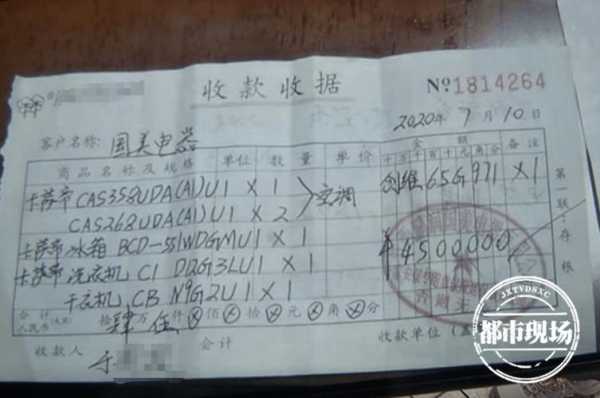 收款收据
№1814264
2020年7月10日
客户名称: 国美电器
商品名称及规格 单位 数量 单价 金额 备注
卡萨帝 CAS358UDA(A1)U1 X 1 空调 创维 65G971 X 1
CAS268UDA(A1)U1 X 2
卡萨帝 冰箱 BCD-551WDGMU1 X 1 ¥4500000
卡萨帝 洗衣机 C1 D12G3LU1 X 1
干衣机 CB N9G2U1 X 1
合计人民币(大写) 拾肆万伍仟⊗佰⊗拾⊗元⊗角⊗分
收款人 会计 收款单位
第一联:存根
JXTVDSXC
都市现场